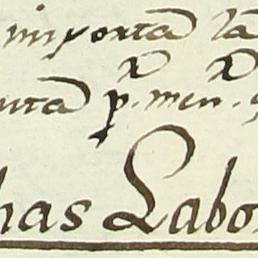 importa la
uta p. men.
has Labo